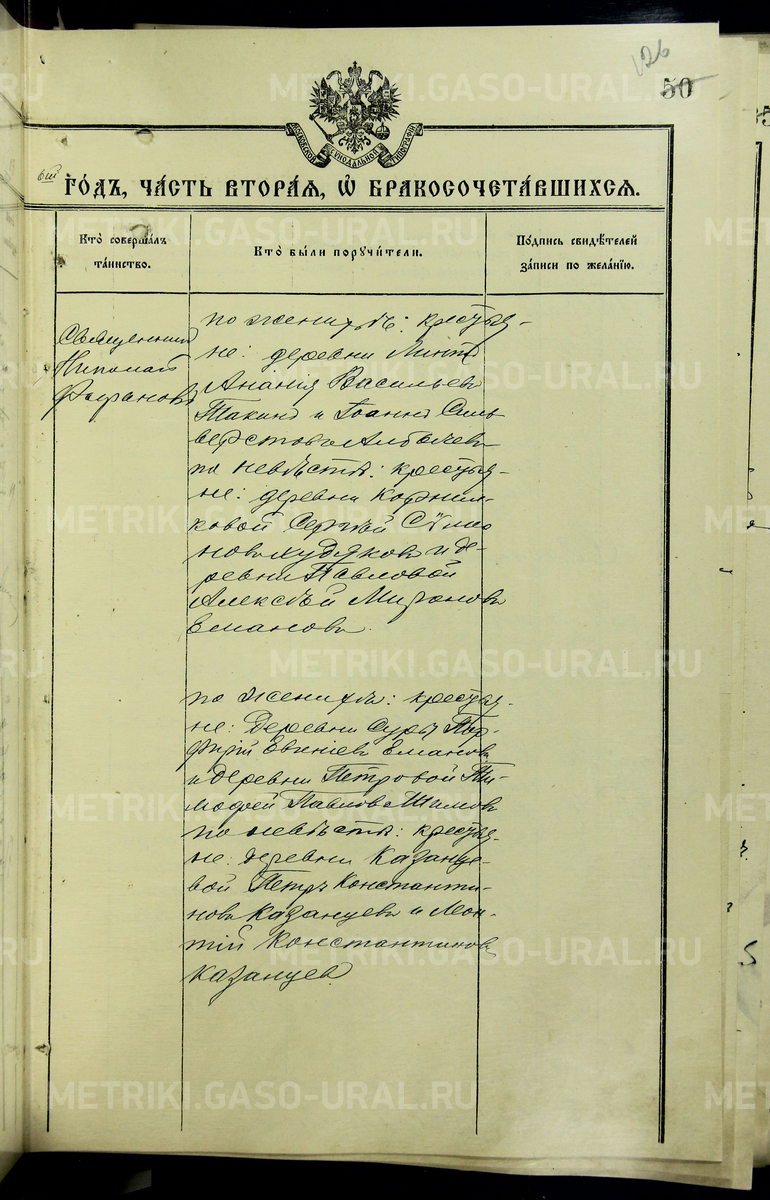 126
50
МОСКОВСКОЙ СѴНОДАЛЬНОЙ ТИПОГРАФІИ
ГО́ДЪ, ЧА́СТЬ ВТОРА́Я, Ѿ БРАКОСОЧЕТА́ВШИХСЯ.
Кто̀ соверша́лъ
та́инство.
Кто̀ бы́ли поручи́тели.
По́дпись свидѣ́телей
за́писи по жела́нію.
Священникъ
Николай
по женихѣ: крестья-
не: деревни
Ананія Васильевъ
и Іоаннъ Силь
верстовъ
по невѣстѣ: крестья-
не: деревни Корнил-
ковой Сергѣй Сѵмео
новъ Худяковъ и де-
ревни Павловой
Алексѣй Мироновъ
Емановъ.
по женихѣ: крестья-
не: деревни Пор-
фирій Евгеніевъ Емановъ
и деревни Петровой Ти-
мофей Павловъ
по невѣстѣ: крестья-
не: деревни Казанце-
вой Петръ Константи-
новъ Казанцевъ и Леон-
тій Константиновъ
Казанцев
METRIKI.GASO-URAL.RU